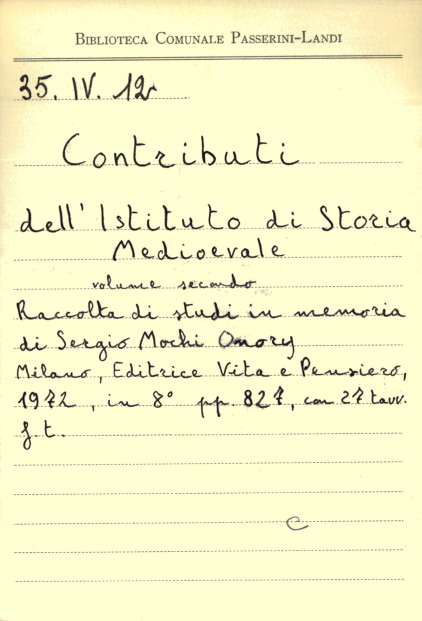 BIBLIOTECA COMUNALE PASSERINI-LANDI
35. IV. 12
Contributi
dell'Istituto di Storia
Medioevale
volume secondo
Raccolta di studi in memoria
di Sergio Mochi Onory
Milano, Editrice Vita e Pensiero,
1972, in 8° pp. 827, con 27 tavv.
f. t.
C